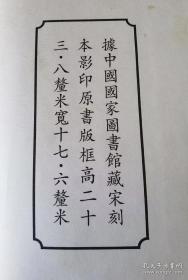 據中國國家圖書館藏宋刻
本影印原書版框高二十
三·八釐米寬十七·六釐米